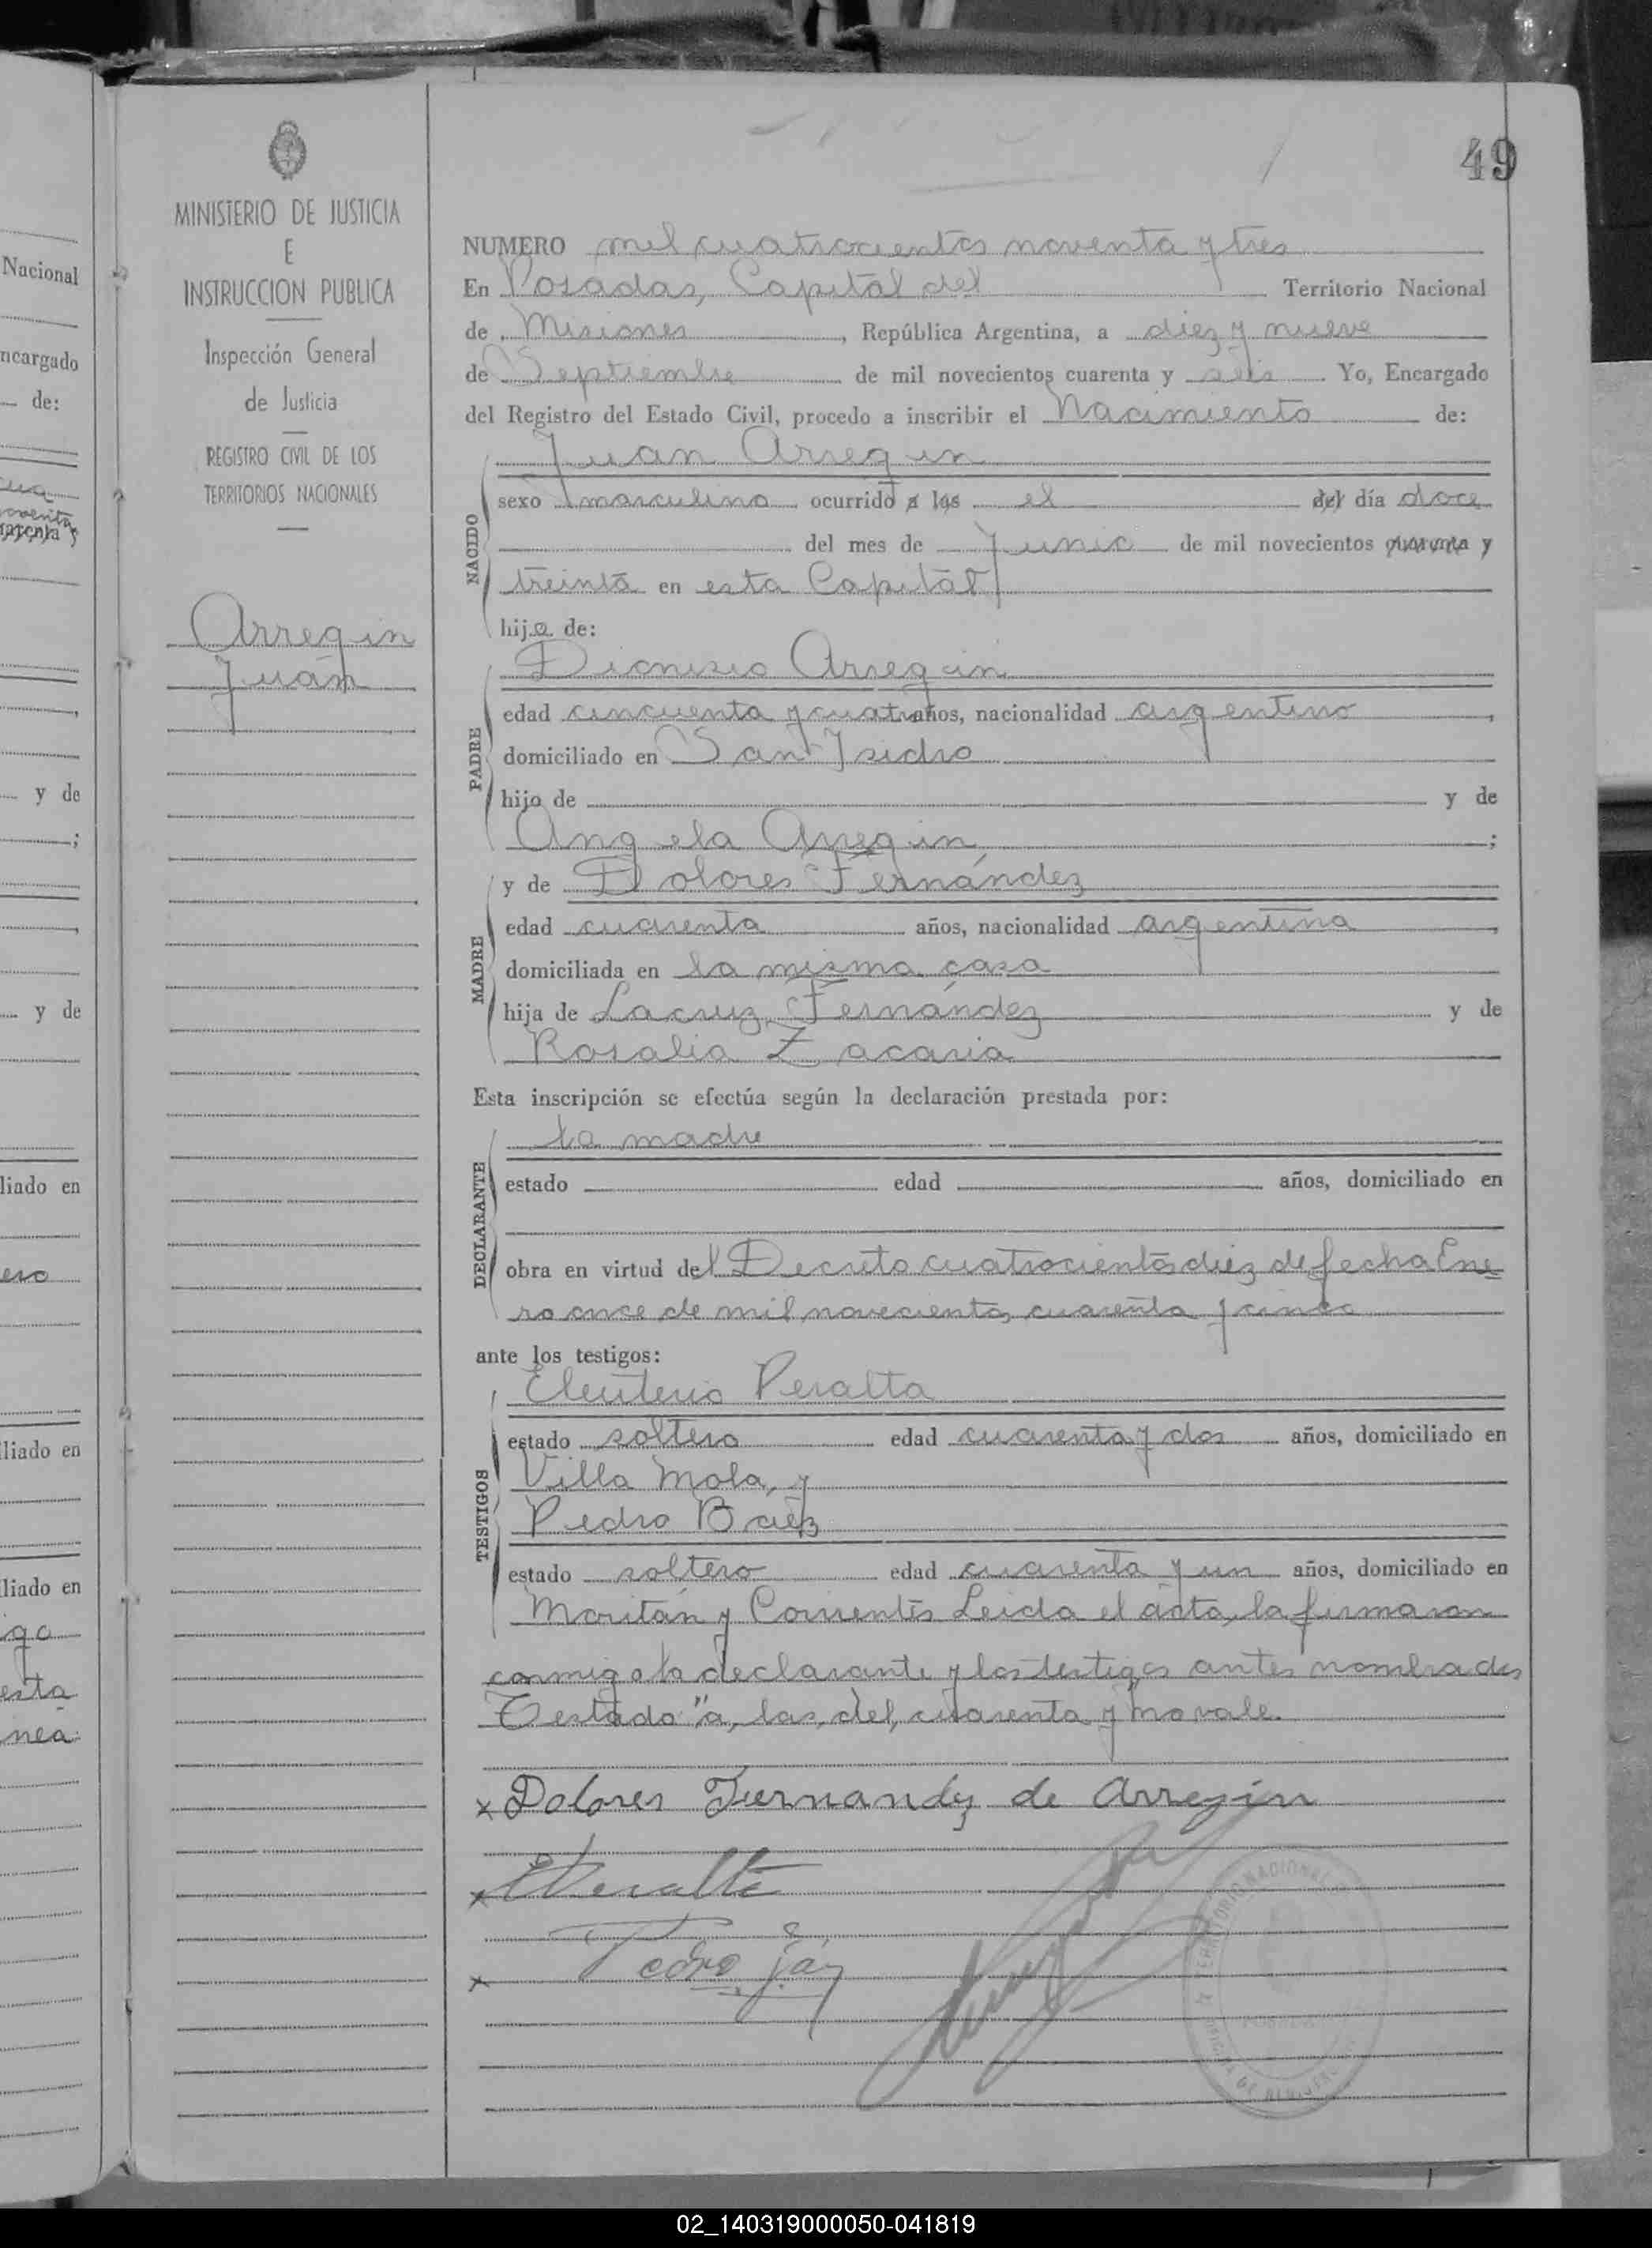 49
MINISTERIO DE JUSTICIA
E
INSTRUCCION PUBLICA
Inspección General
de Justicia
REGISTRO CIVIL DE LOS
TERRITORIOS NACIONALES
Arregin
Juan
NUMERO mil cuatrocientos noventa y tres
En Posadas, Capital del Territorio Nacional
de Misiones, República Argentina, a diez y nueve
de Septiembre de mil novecientos cuarenta y seis Yo, Encargado
del Registro del Estado Civil, procedo a inscribir el Nacimiento de:
Juan Arregin
NACIDO
sexo masculino ocurrido a las el del día doce
del mes de Junio de mil novecientos cuarenta y
treinta en esta Capital
hijo de:
PADRE
Dionisio Arregin
edad cincuenta y cuatro años, nacionalidad argentino,
domiciliado en San Isidro
hijo de y de
Angela Arregin;
MADRE
y de Dolores Fernández
edad cuarenta años, nacionalidad argentina,
domiciliada en la misma casa
hija de Lacruz Fernández y de
Rosalia Zacaria
Esta inscripción se efectúa según la declaración prestada por:
DECLARANTE
La madre
estado edad años, domiciliado en
obra en virtud del Decreto cuatrocientos diez de fecha Ene
ro once de mil novecientos cuarenta y cinco
ante los testigos:
TESTIGOS
Eleuterio Peralta
estado soltero edad cuarenta y dos años, domiciliado en
Villa Mola, y
Pedro Baéz
estado soltero edad cuarenta y un años, domiciliado en
Moritán y Corrientes Leida el acta, la firmaron
conmigo la declarante y los testigos antes nombrados
Testado "a, las, del, cuarenta y" no vale.
x Dolores Fernandez de Arregin
x EPeralta
x Pedro
Nacional
ncargado
de:
y de
y de
liado en
liado en
liado en
esta
nea
02_140319000050-041819